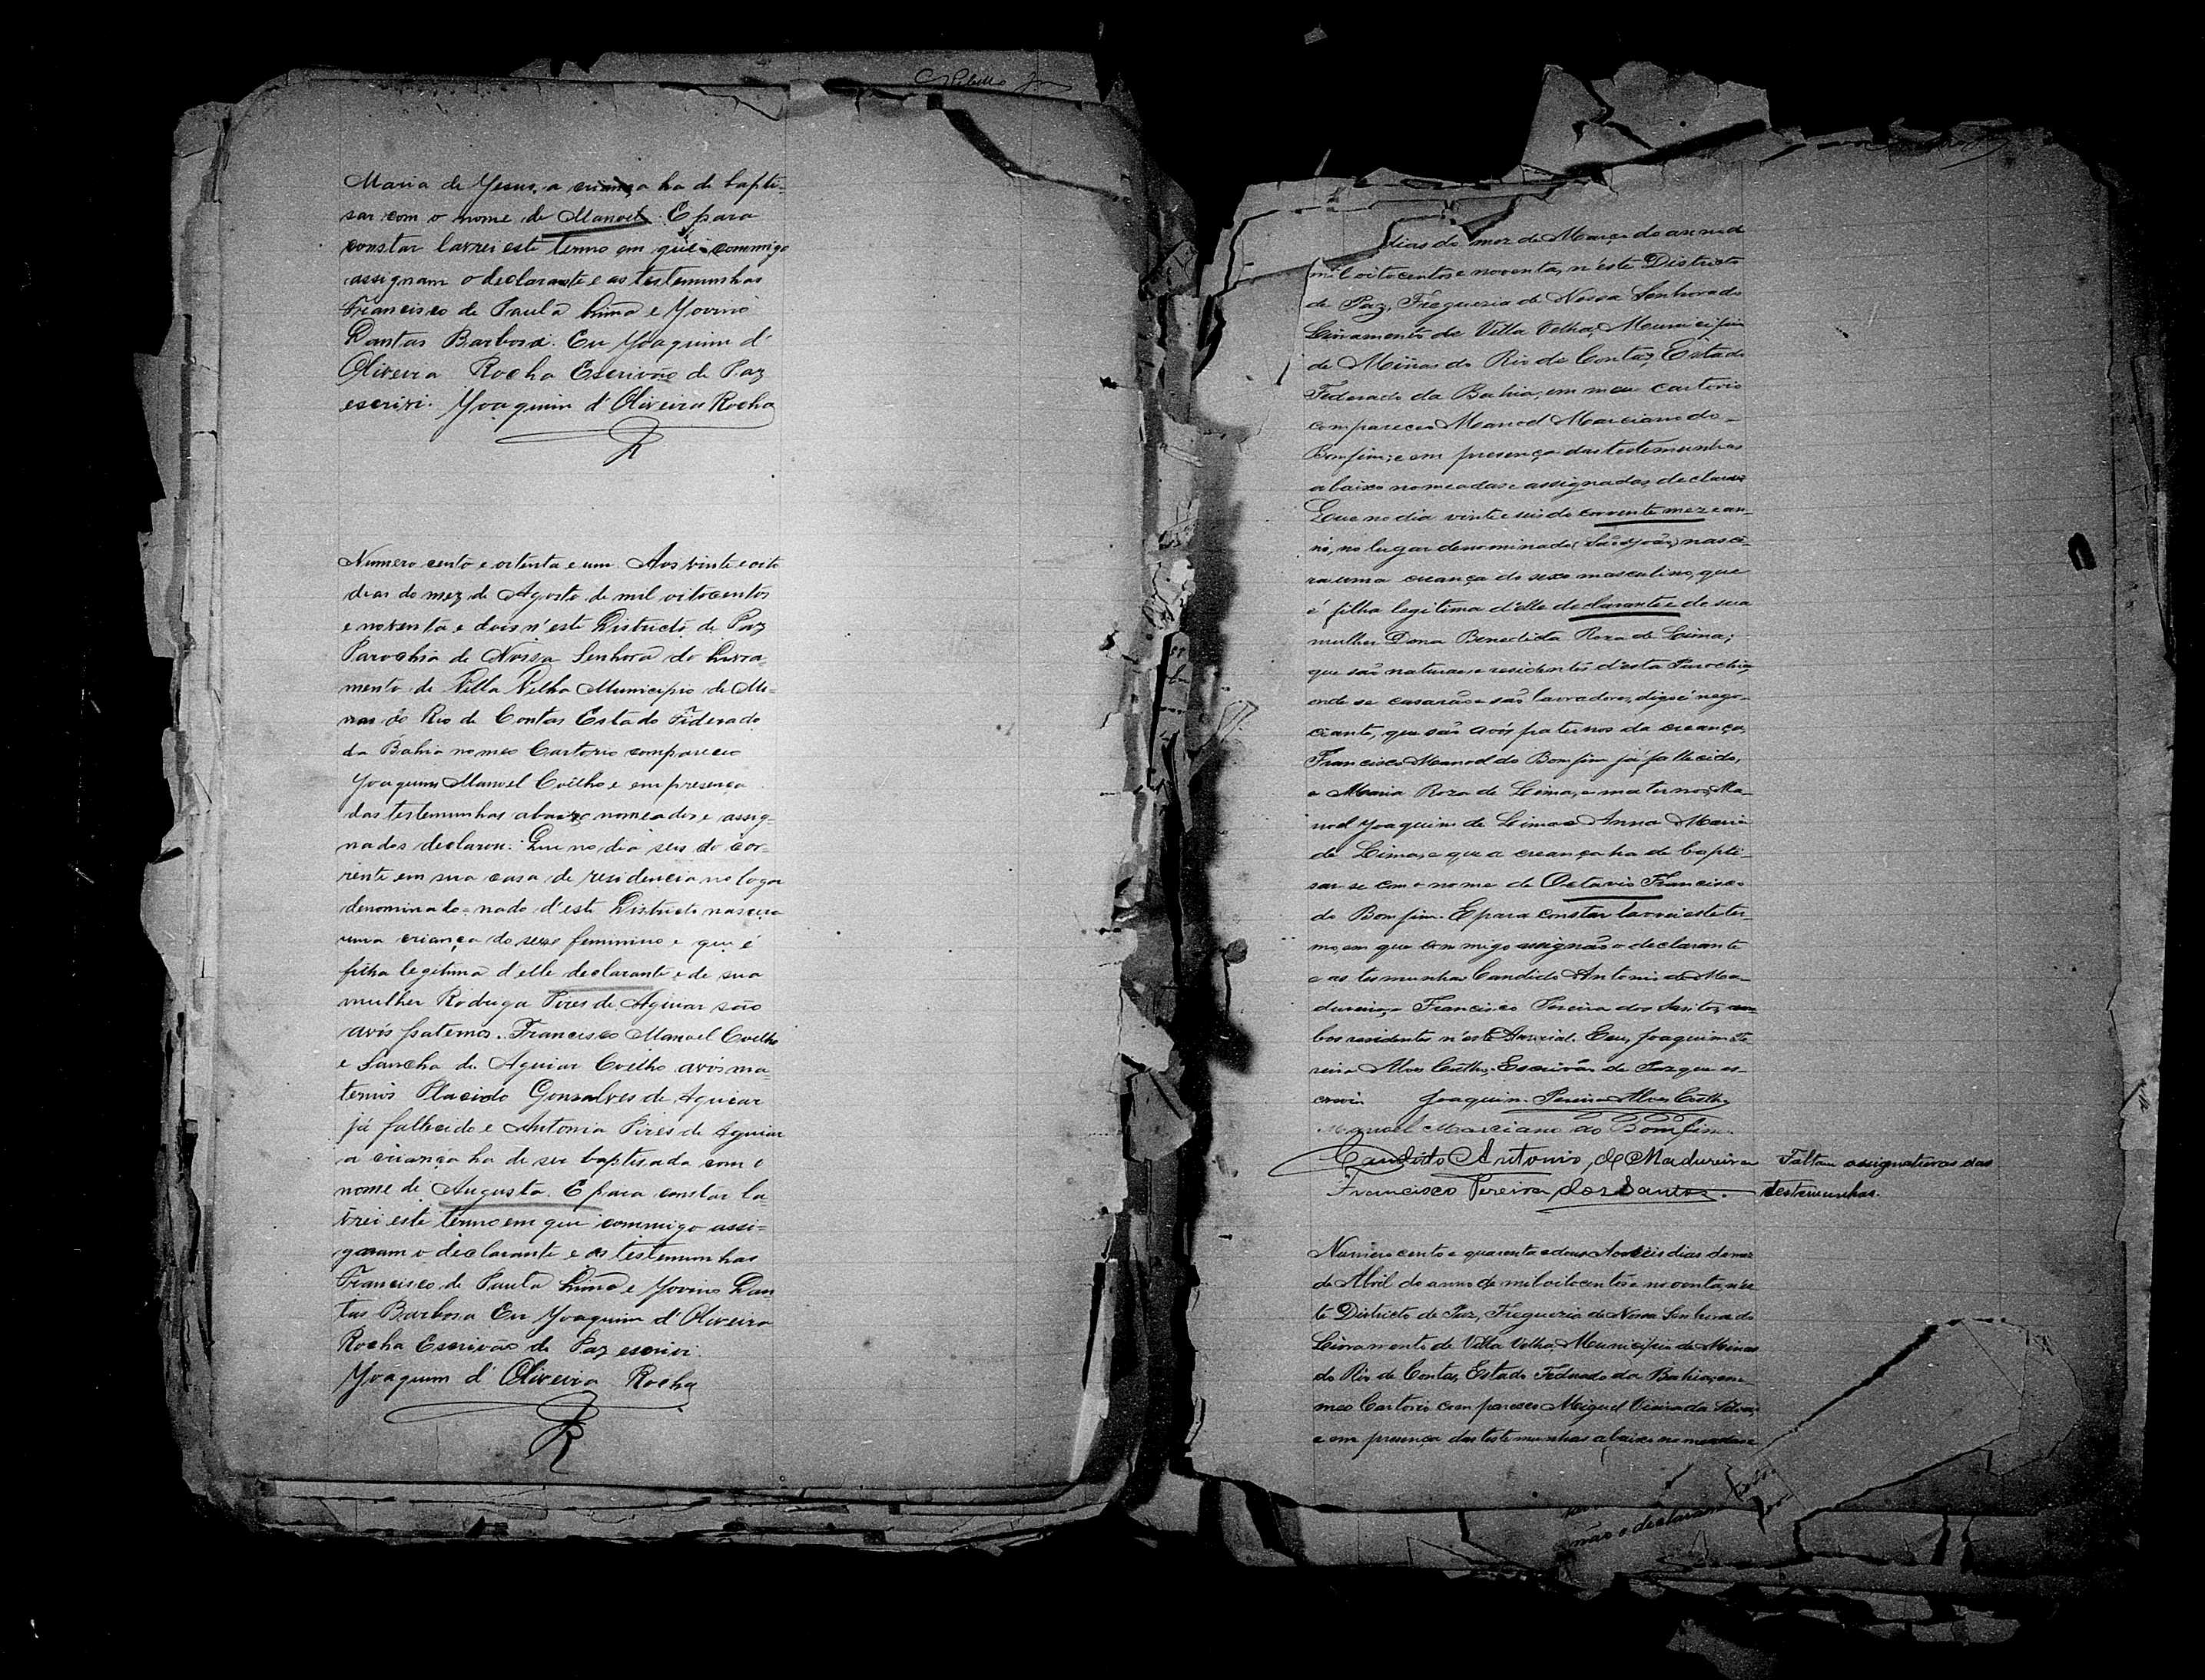 Maria de Yesus, a criança ha de bapti-
sar com o nome de Manoel. E para
constar lavrei este termo em que commigo
assignam o declarante e as testemunhas
Francisco de Paula Lima e Yovino
Dantas Barbosa. Eu Yoaquim d'
Oliveira Rocha Escrivão de Paz
escrivi. Yoaquim d'Oliveira Rocha
Numero cento e oitenta e um. Aos vinte e oito
dias do mez de Agosto de mil oitocentos
e noventa e dois n'este Districto de Paz
Parochia de Nossa Senhora do Livra-
mento de Villa Velha Municipio de Mi-
nas do Rio de Contas Estado Federado
da Bahia no meo Cartorio compareceo
Yoaquim Manoel Coêlho e em presença
das testemunhas abaixo nomeados e assig-
nados declarou: Que no dia seis do cor-
rente em sua casa de residencia no logar
denominado=nado d'este Districto nascera
uma criança do sexo feminino e que é
filha legitima d'elle declarante e de sua
mulher Roduga Pires de Aguiar são
avós paternos. Francisco Manoel Coelho
e Sancha de Aguiar Coêlho avós ma-
ternos Placido Gonsalves de Aguiar
já fallecido e Antonia Pires de Aguiar
a criança ha de ser baptisada com o
nome de Augusta. E para constar la
vrei este termo em que commigo assi=
gnaram o declarante e as testemunhas
Francisco de Paula Lima e Yovino Dan
tas Barbosa Eu Yoaquim d'Oliveira
Rocha Escrivão de Paz escrivi.
Yoaquim d'Oliveira Rocha
dias do mez de Março do anno de
mil oitocentos e noventa, n'este Districto
de Paz, Freguezia de Nossa Senhora do
Livramento de Villa Velha, Municipio
de Minas do Rio de Contas, Estado
Federado da Bahia, em meu cartorio
compareceo Manoel Marciano do-
Bomfim; e em presença das testemunhas
abaixo nomeadas e assignadas, declarou
Que no dia vinte e seis do corrente mez e an-
no, no lugar denominado (São João) nasce-
ra uma creança do sexo masculino, que
é filha legitima d'elle declarante e de sua
mulher Dona Benedicta Roza de Lima;
que são naturaes e residentes d'esta Parochia,
onde se casarão e são lavradores, digo é nego-
ciante, que são avós paternos da creança,
Francisco Manoel do Bomfim já fallecido,
e Maria Roza de Lima, e maternos, Ma-
noel Joaquim de Lima e Anna Maria
de Lima, e que a creança ha de bapti-
sar-se com o nome de Octavio Francisco
do Bomfim. E para constar lavrei este ter-
mo, em que commigo assignão o declarante
e as tesmunhas Candido Antonio de Ma-
dureira, e Francisco Pereira dos Santos, am-
bos residentes n'este Arraial. Eu, Joaquim Pe
reira Alves Coêlho, Escrivão de Paz que es-
crevi Joaquim Pereira Alves Coêlho
Manoel Marciano do Bomfim
Candido Antonio, de Madureira Faltam assignaturas das
Francisco Pereira dos Santos. testemunhas.
Numero cento e quarenta e dous Aos seis dias do mez
de Abril do anno de mil oitocentos e noventa, n'es
te Districto de Paz, Freguezia de Nossa Senhora do
Livramento de Villa Velha, Municipio de Minas
do Rio de Contas, Estado Federado da Bahia, em
meo Cartorio compareceo Miguel Vieira da Silva;
e em presença das testemunhas abaixo nomeadas e
não o declararam